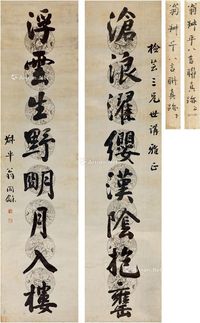 滄浪濯纓漢陰抱甕
松芸三兄世講雅正
浮雲生野明月入樓
叔平翁同龢
翁叔平八言聯真跡
翁叔平八言聯真跡